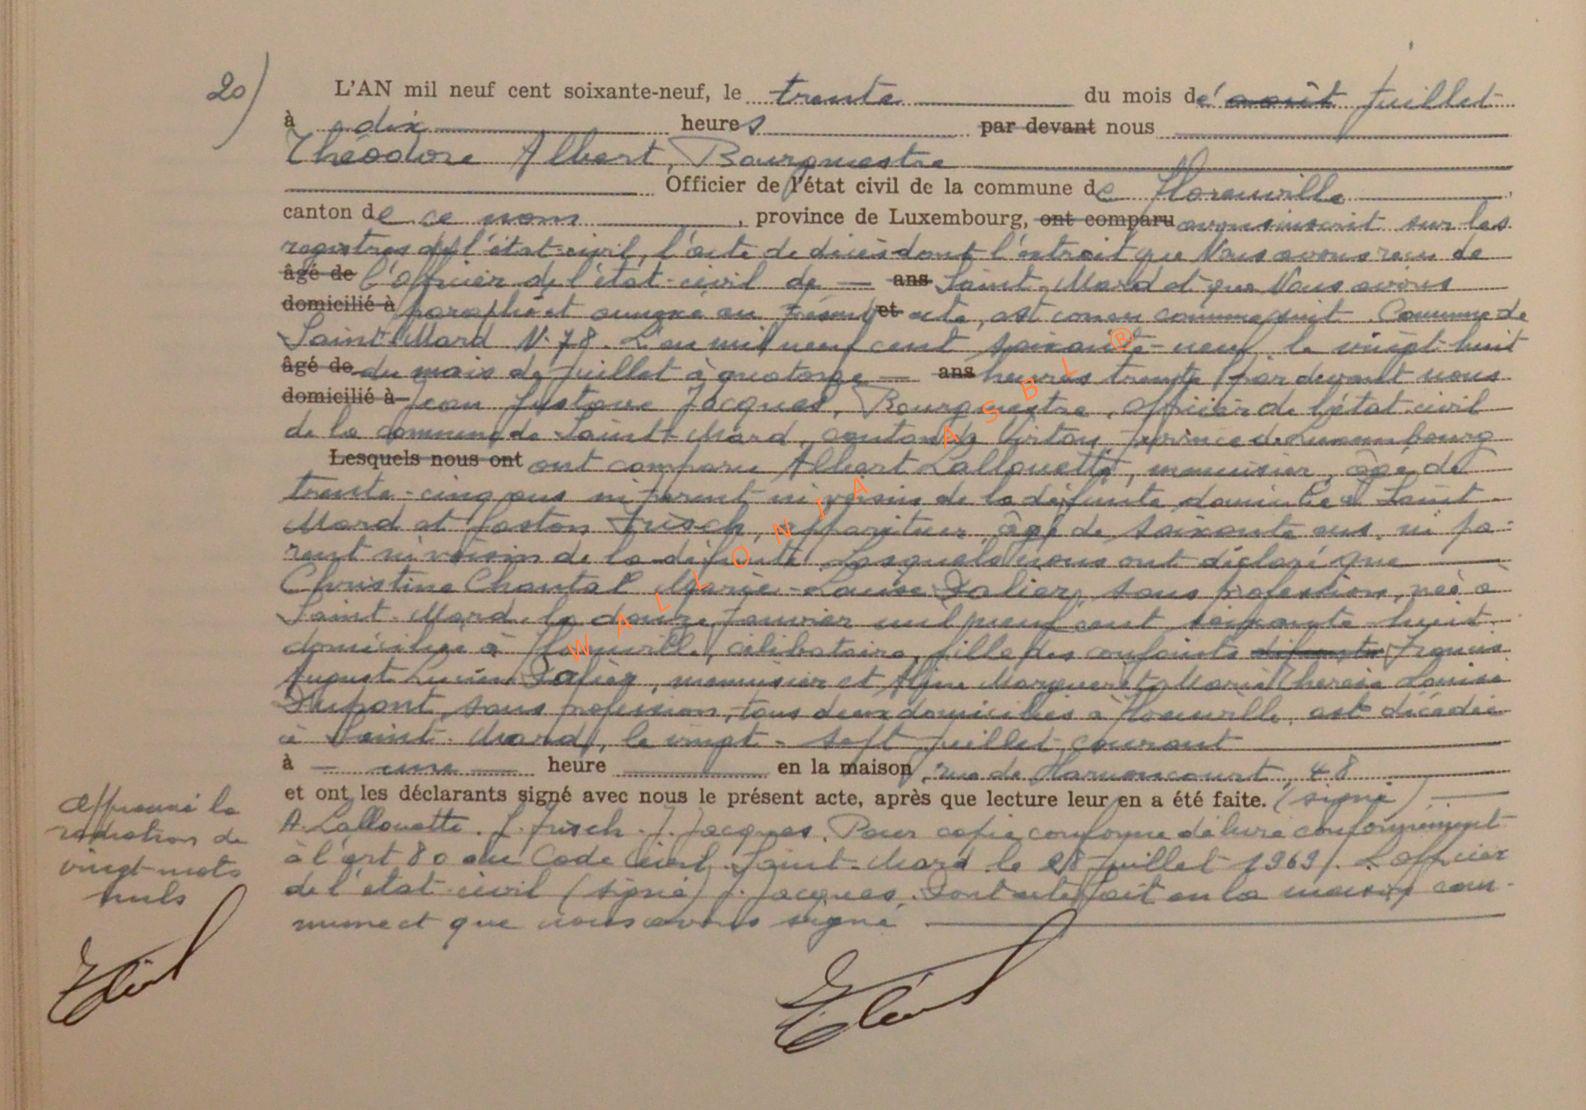 20)
L'AN mil neuf cent soixante-neuf, le trente du mois de août Juillet
à dix heures par devant nous
Théodore Albert, Bourgmestre
Officier de l'état civil de la commune de Florenville
canton de ce nom, province de Luxembourg, ont comparu avons inscrit sur les
registres de l'état-civil, l'acte de décès dont l'extrait que Nous avons reçu de
âgé de l'officier de l'état-civil de — ans Saint-Mard et que Nous avons
domicilié à paraphé et annexé au présent et acte, est conçu comme suit. Commune de
Saint-Mard N° 78. L'an mil neuf cent soixante-neuf, le vingt huit
âgé de du mois de Juillet à quatorze — ans heures trente, par devant nous
domicilié à Jean Gustave Jacques, Bourgmestre, officier de l'état-civil
de la commune de Saint-Mard, canton de Virton, province de Luxembourg
Lesquels nous ont ont comparu Albert Lallouette, menuisier, âgé de
trente-cinq ans ni parent ni voisin de la défunte, domicilié à Saint-
Mard et Gaston Frisch, appariteur, âgé de soixante ans, ni pa-
rent ni voisin de la défunte. Lesquels nous ont déclaré que
Christine Chantal Marie-Louise Dalier, sans profession, née à
Saint-Mard, le douze Janvier mil neuf cent soixante-huit
domiciliée à Florenville, célibataire, fille des conjoints Francis
August Lucien Dalier, menuisier et Aline Marguerite Marie Thérèse Louise
Dupont, sans profession, tous deux domiciliés à Florenville, est décédée
à Saint-Mard, le vingt-sept Juillet courant
à — une — heure en la maison, rue de Harnoncourt, 48
et ont les déclarants signé avec nous le présent acte, après que lecture leur en a été faite. (signé)
A. Lallouette. G. Frisch. J. Jacques. Pour copie conforme délivré conformément
à l'art 80 du Code Civil. Saint-Mard le 28 Juillet 1969. L'officier
de l'état-civil (signé) J. Jacques. Dont acte fait en la maison com-
mune et que nous avons signé
Approuvé la
radiation de
vingt mots
nuls
WALLONIA ASBL ®